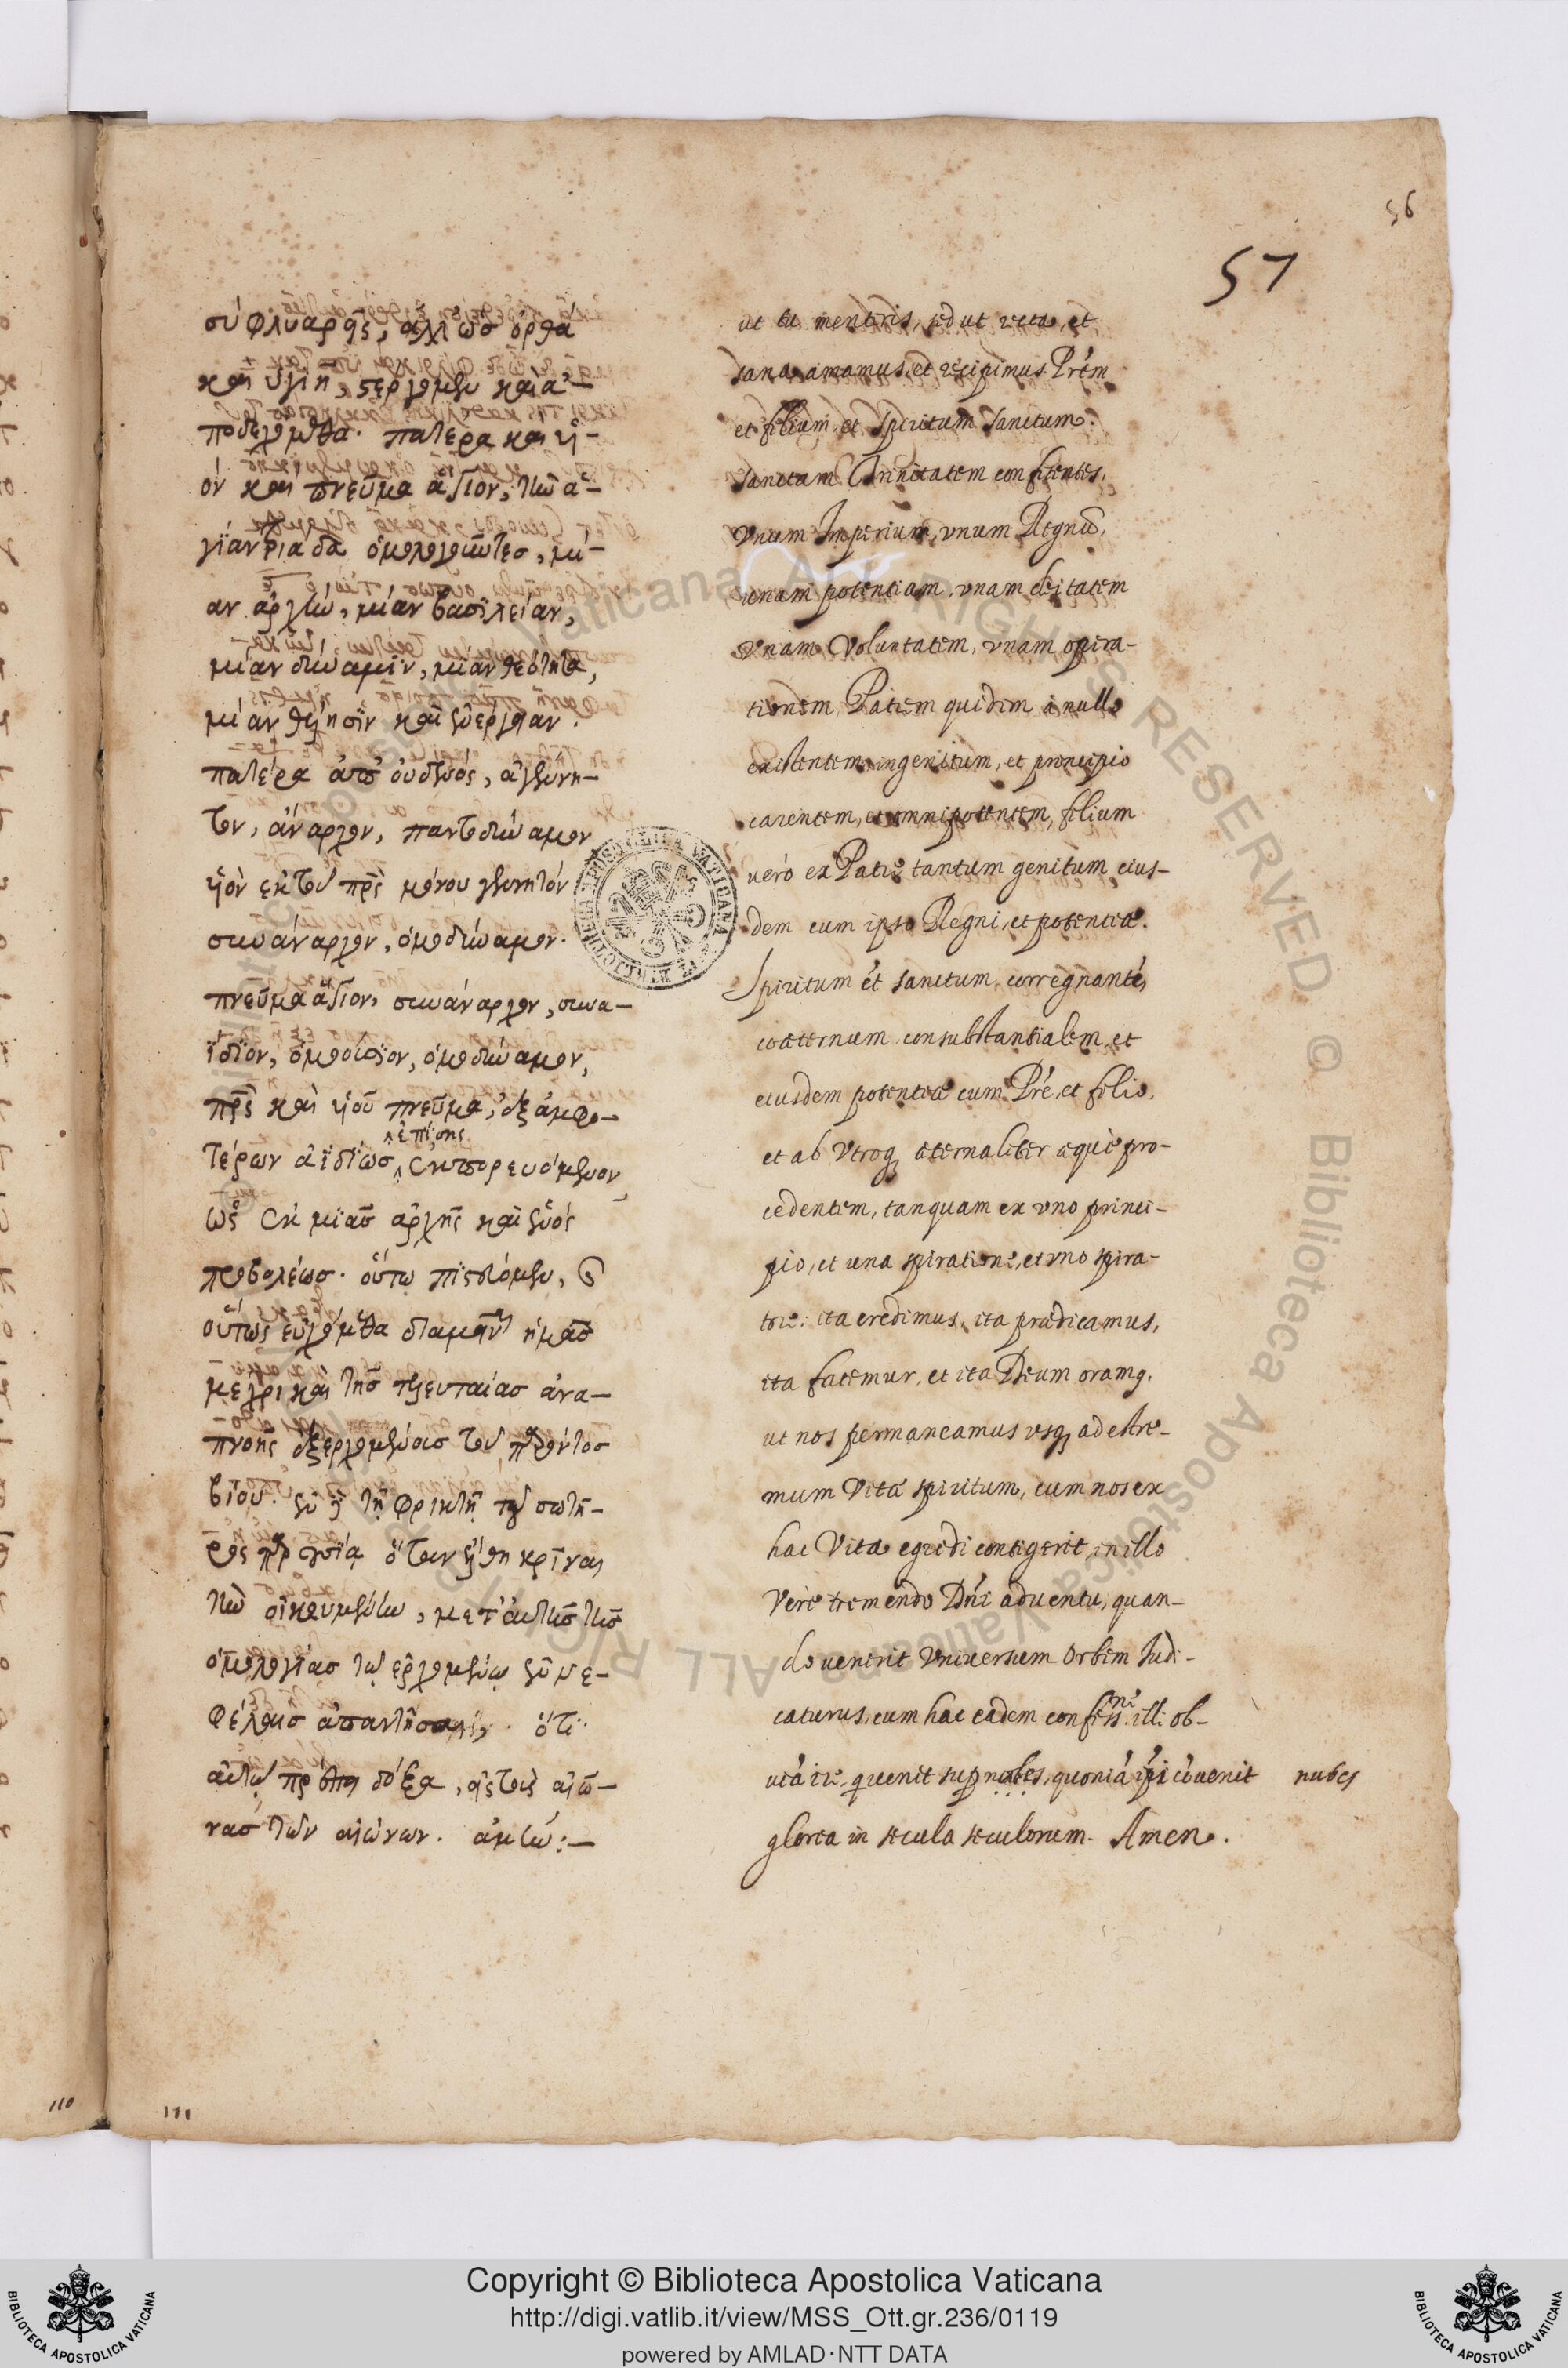 56
57
σύ φλυαρεῖς, ἀλλ' ὡσ ὀρθά
καὶ ὑγιῆ, στέργομεν καὶ ἀ-
ποδεχόμεθα. πατέρα καὶ υἱ-
όν καὶ πνεῦμα ἅγιον, τὴν ἁ-
γίαν τριάδα ὁμολογοῦντεσ, μί-
αν ἀρχὴν, μίαν βασιλείαν,
μίαν δύναμιν, μίαν θεότητα,
μίαν θέλησιν καὶ ἐνέργειαν.
πατέρα ἀπ' οὐδενός, ἀγέννη-
τον, ἄναρχον, παντοδύναμον
υἱὸν ἐκ τοῦ πρς μόνου γεννητόν
συνάναρχον, ὁμοδύναμον.
πνεῦμα ἅγιον, συνάναρχον, συνα-
ΐδιον, ὁμοούσιον, ὁμοδύναμον,
πρς καὶ υἱοῦ πνεῦμα, ἐξ ἀμφο-
ἐπίσης
τέρων ἀϊδίωσ ἐκπορευόμενον
ὡς ἐκ μιᾶσ ἀρχῆς καὶ ἑνός
προβολέωσ. οὕτω πιστεύομεν,
οὕτως εὐχόμεθα διαμένειν ἡμᾶσ
μέχρι καὶ τῆσ τελευταίασ ἀνα-
πνοῆς ἐξερχομένοισ τοῦ παρόντοσ
βίου. ἐν τῇ φρικτῇ τοῦ σωτῆ-
ρος παρουσίᾳ ὅταν ἔλθῃ κρῖναι
τὴν οἰκουμένην, μετ' αὐτῆσ τῆσ
ὁμολογίασ τῷ ἐρχομένῳ ἐν νε-
φέλαισ ἀπαντῆσαι. ὅτι
αὐτῷ πρέπει δόξα, εἰς τοὺς αἰῶ-
νασ τῶν αἰώνων. ἀμήν:-
ut tu mentiris, sed ut recta, et
sana amamus, et recipimus Prem
et filium, et Spiritum Sanctum.
Sanctam Trinitatem confitentes,
Vnum Imperium, vnum Regnũ,
unam potentiam, vnam deitatem
Vnam Voluntatem, vnam opera-
tionem, Patrem quidem à nullo
existentem ingenitum, et principio
carentem, et omnipotentem, filium
verò ex Patre tantum genitum eius-
dem cum ipso Regni, et potentiæ.
Spiritum et sanctum, corregnante,
coæternum consubstantialem, et
eiusdem potentiæ cum Pre, et filio,
et ab Vtroq æternaliter æquè pro-
cedentem, tanquam ex vno princi-
pio, et una spiratione, et vno spira-
tore: ita credimus, ita prædicamus,
ita fatemur, et ita Deum oramq.
ut nos permaneamus vsq ad extre-
mum Vitæ spiritum, cum nos ex
hac Vita egredi contigerit, in illo
Vere tremendo Dni aduentu, quan-
do venerit Vniuersum Orbem Iudi-
caturus, cum hac eadem confess.ne illi ob-
uiã ire, q uenit sup nubes, quoniã ipi cõuenit nubes
gloria in secula seculorum. Amen.
110
111
Copyright © Biblioteca Apostolica Vaticana
http://digi.vatlib.it/view/MSS_Ott.gr.236/0119
powered by AMLAD·NTT DATA